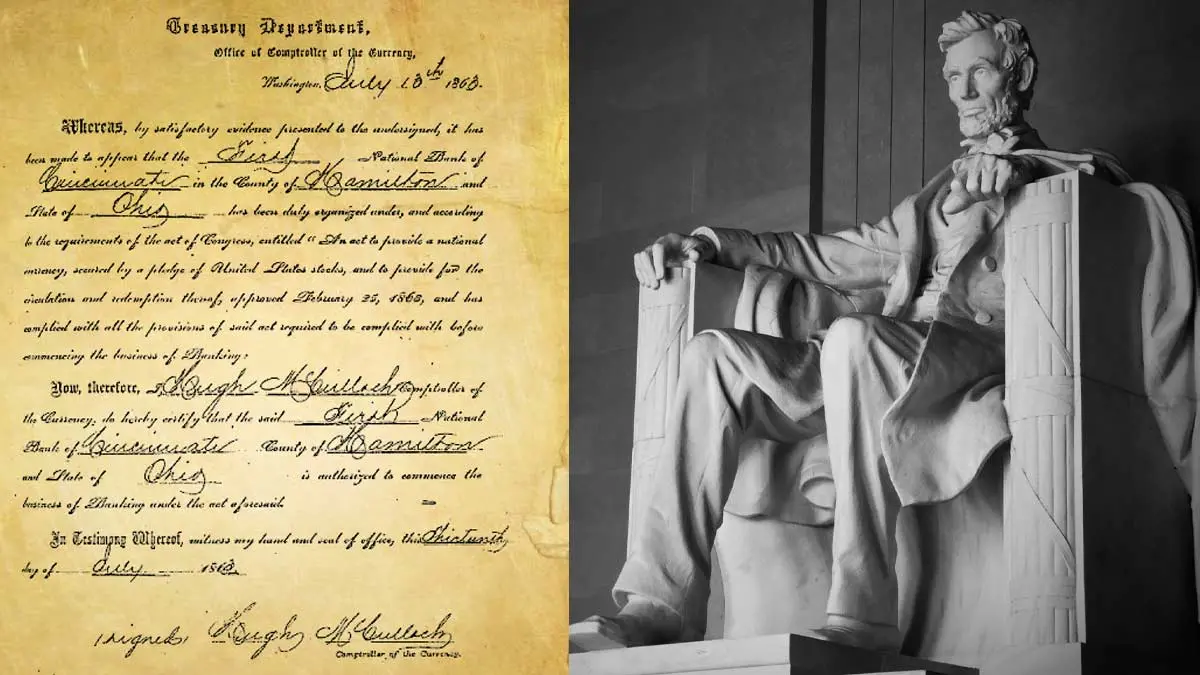 Treasury Department,
Office of Comptroller of the Currency,
Washington, July 13th 1863.
Whereas, by satisfactory evidence presented to the undersigned, it has
been made to appear that the First National Bank of
Cincinnati in the County of Hamilton and
State of Ohio has been duly organized under, and according
to the requirements of the act of Congress, entitled "An act to provide a national
currency, secured by a pledge of United States stocks, and to provide for the
circulation and redemption thereof, approved February 25, 1863, and has
complied with all the provisions of said act required to be complied with before
commencing the business of Banking:
Now, therefore, I Hugh McCulloch Comptroller of
the Currency, do hereby certify that the said First National
Bank of Cincinnati County of Hamilton
and State of Ohio is authorized to commence the
business of Banking under the act aforesaid.
In Testimony Whereof, witness my hand and seal of office, this thirteenth
day of July 1863.
(signed) Hugh McCulloch
Comptroller of the Currency.